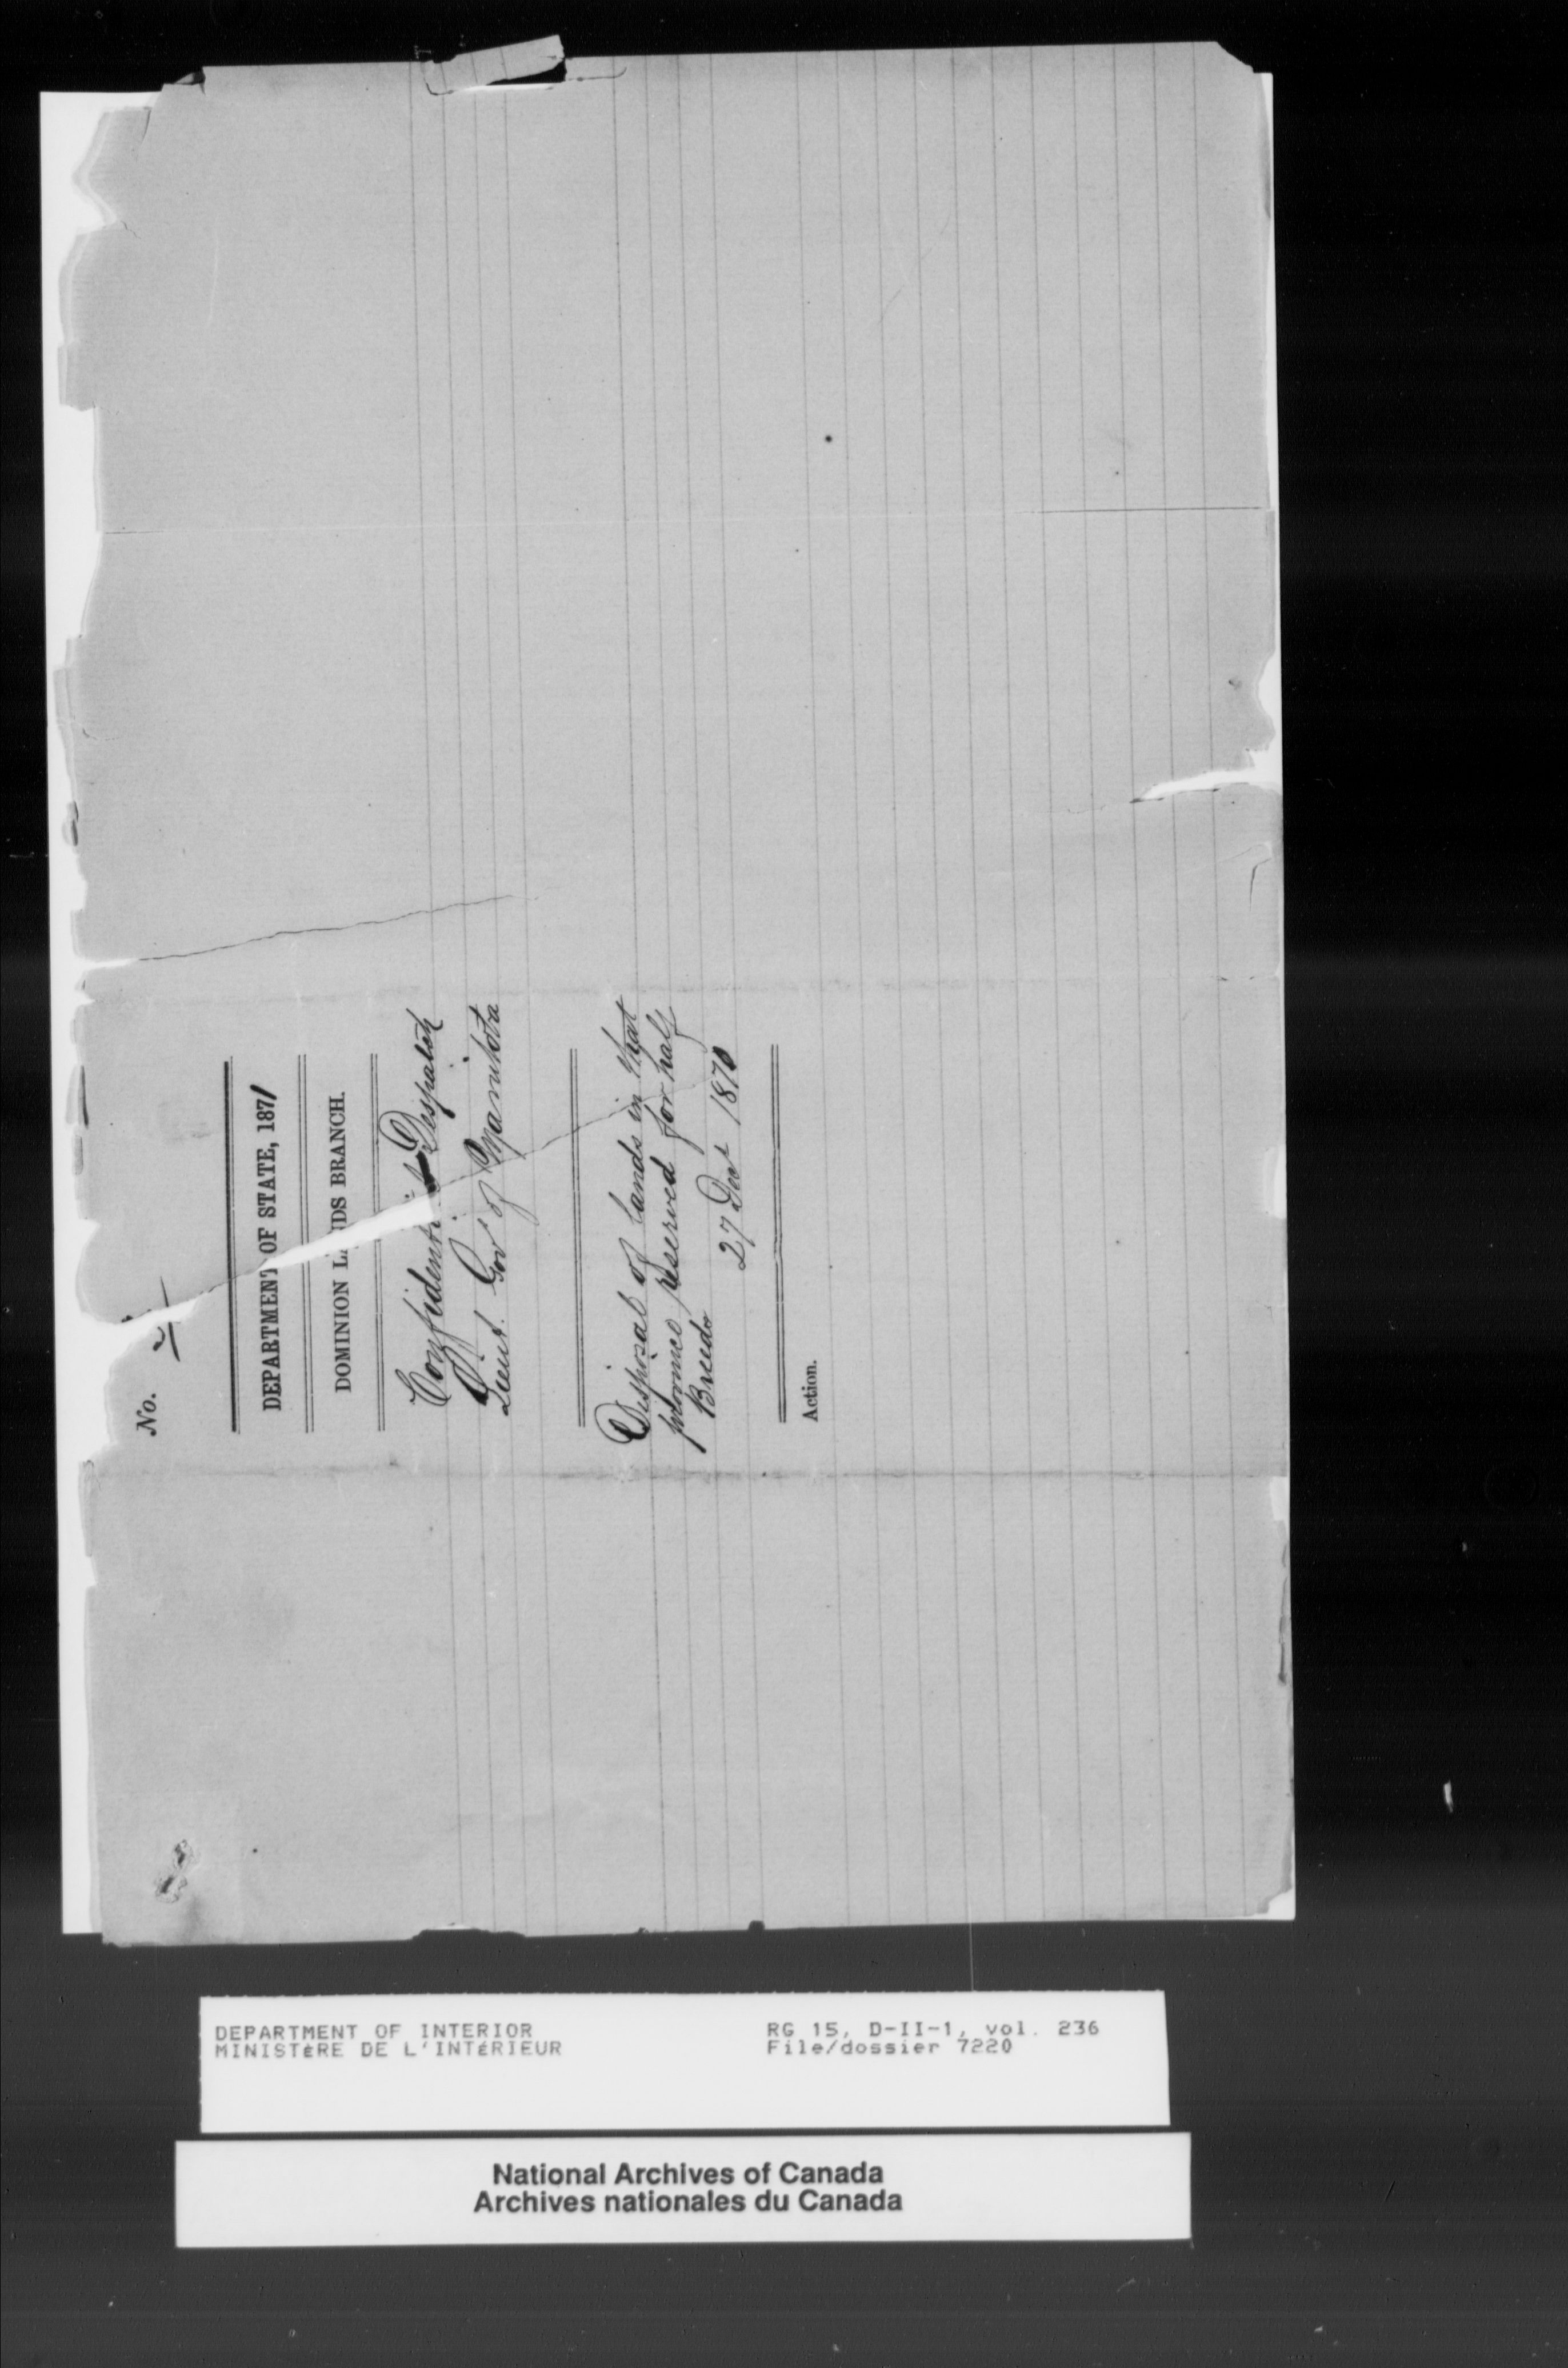 No.
DEPARTMENT OF STATE, 1871
DOMINION LANDS BRANCH.
Confidential Despatch
Lieut. Govr of Manitoba
Disposal of lands in that
province reserved for half
Breeds
27 Decr 1870
Action.
DEPARTMENT OF INTERIOR
MINISTÈRE DE L'INTÉRIEUR
RG 15, D-II-1, vol. 236
File/dossier 7220
National Archives of Canada
Archives nationales du Canada